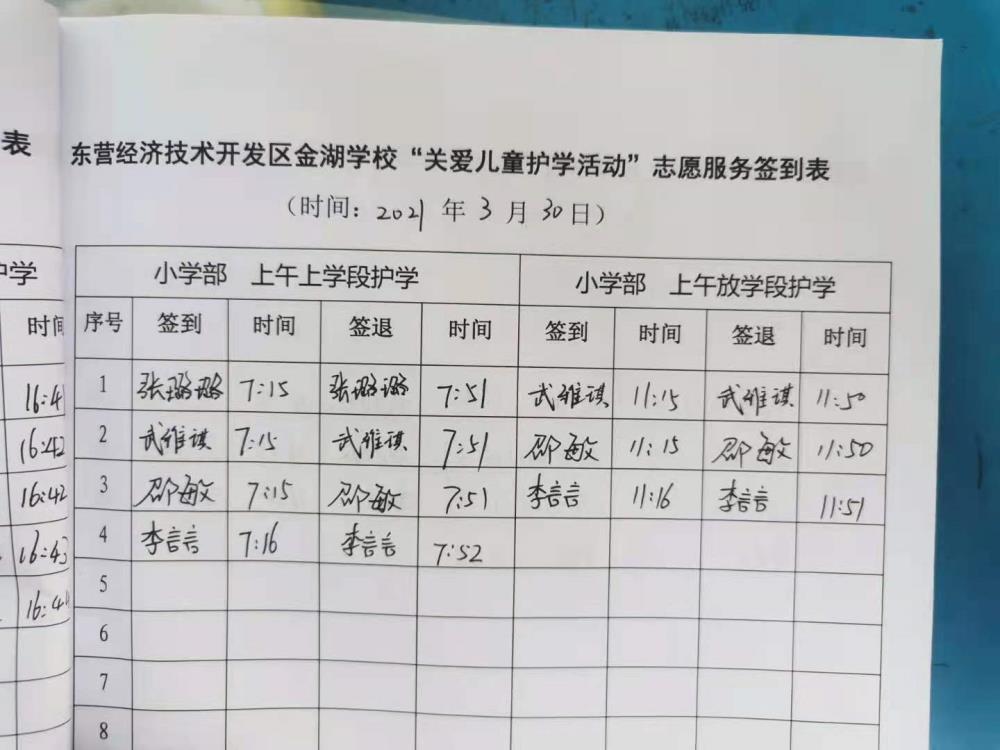 表
东营经济技术开发区金湖学校“关爱儿童护学活动”志愿服务签到表
（时间：2021 年 3 月 30日）
护学
小学部 上午上学段护学 小学部 上午放学段护学
时间
序号 签到 时间 签退 时间 签到 时间 签退 时间
1 张璐璐 7:15 张璐璐 7:51 武维琪 11:15 武维琪 11:50
16:4
2 武维琪 7:15 武维琪 7:51 邵敏 11:15 邵敏 11:50
16:42
3 邵敏 7:15 邵敏 7:51 李言言 11:16 李言言 11:51
16:42
4 李言言 7:16 李言言 7:52
16:43
5
16:4
6
7
8